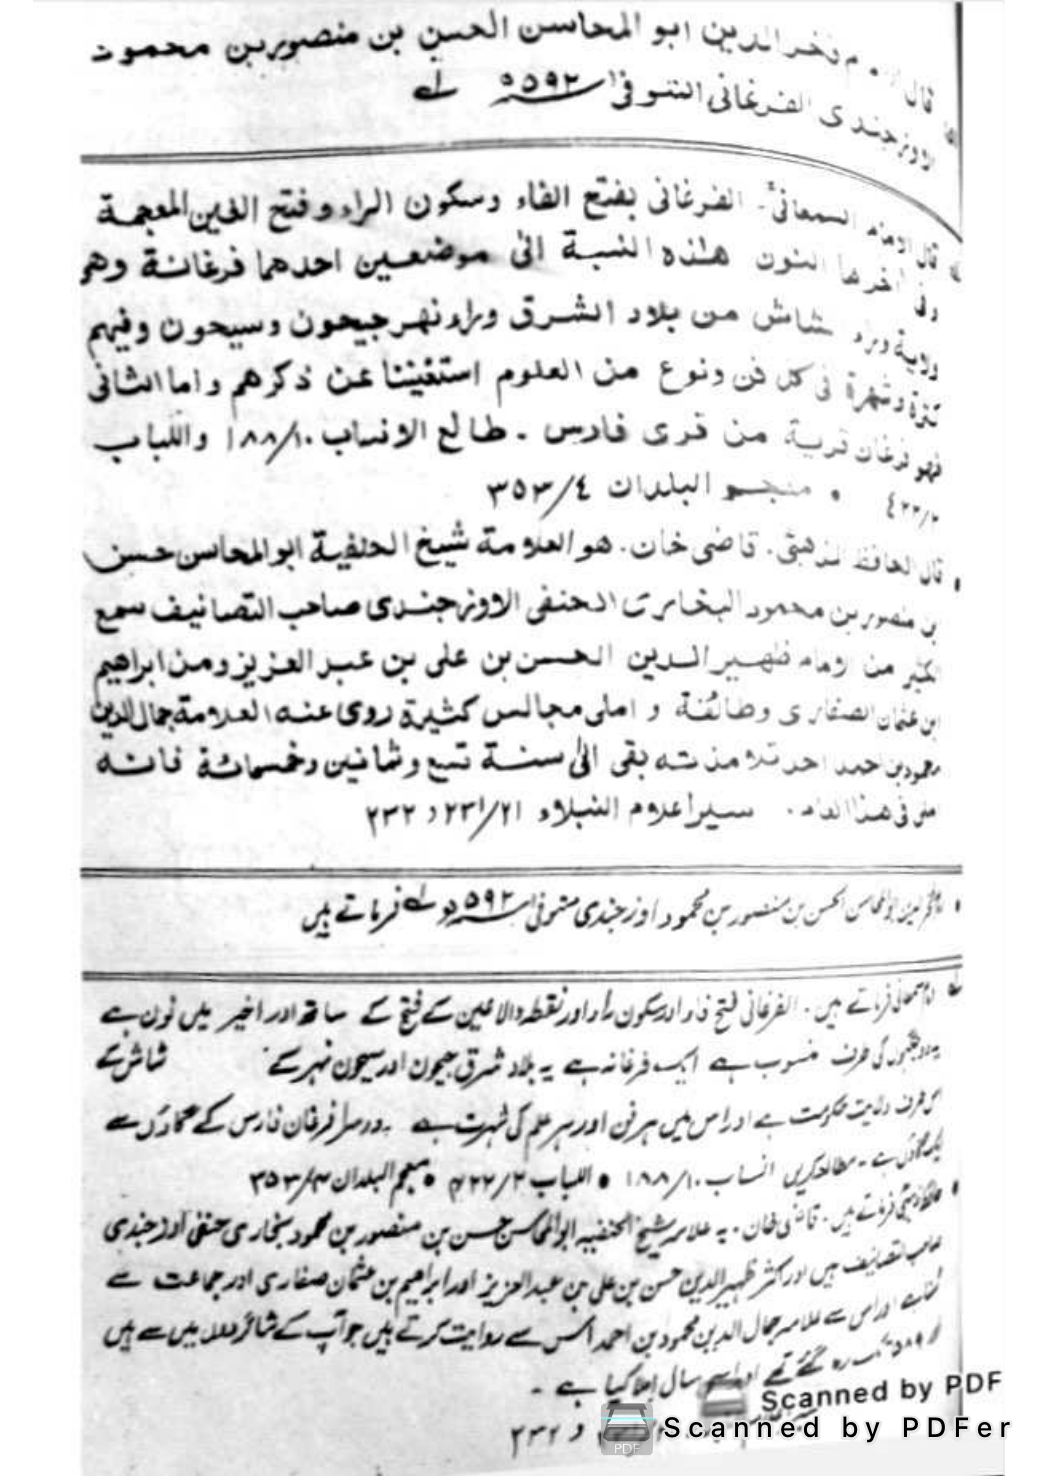 قال الامام فخر الدين ابو المحاسن الحسن بن منصور بن محمود
الاوزجندى الفرغانى المتوفى ۵۹۲ھ لے
قال الامام السمعانىؒ۔ الفرغانى بفتح الفاء وسكون الراء وفتح الغين المعجمة
وفى اخرها النون هذه النسبة الى موضعين احدهما فرغانة وهى
ولاية وراء الشاش من بلاد الشرق وراء نهر جيحون وسيحون وفيهم
كثرة وشهرة فى كل فن ونوع من العلوم استغنينا عن ذكرهم واما الثانى
فهو فرغان قرية من قرى فارس ۔ طالع الانساب ۱۸۸/۱۰ واللباب
۴۲۲/۲ • معجم البلدان ۳۵۳/٤
• قال الحافظ الذهبى۔ قاضى خان۔ هو العلامة شيخ الحنفية ابو المحاسن حسن
بن منصور بن محمود البخارى الحنفى الاوزجندى صاحب التصانيف سمع
الكثير من الامام ظهير الدين الحسن بن على بن عبد العزيز ومن ابراهيم
ابن عثمان الصفارى وطائفة و املى مجالس كثيرة روى عنه العلامة جمال الدين
محمود بن احمد احد تلامذته بقى الى سنة تسع وثمانين وخمسمائة فانه
املى فى هذا العام ۔ سير اعلام النبلاء ۲۳۱/۲۱ و ۲۳۲
• امام فخر الدين ابو المحاسن الحسن بن منصور بن محمود اوزجندى متوفى ۵۹۲ھ لے فرماتے ہیں
لے امام سمعانى فرماتے ہیں ۔ الفرغانى فتح فاء اور سكون راء اور نقطہ والا غين كے فتح كے ساتھ اور اخير ميں نون ہے
يہ دو جگہوں كى طرف منسوب ہے ايک فرغانہ ہے يہ بلاد شرق جيحون اور سيحون نہر كے شاش كے
اس طرف ولايت حكومت ہے اور اس ميں ہر فن اور ہر علم كى شہرت ہے ۔ دوسرا فرغان فارس كے گاؤں سے
ايک گاؤں ہے ۔ مطالعہ كريں انساب ۱۸۸/۱۰ • اللباب ۴۲۲/۲ • معجم البلدان ۳۵۳/۴
• حافظ ذہبى فرماتے ہیں۔ قاضى خان۔ يہ علامہ شيخ الحنفيہ ابو المحاسن حسن بن منصور بن محمود بخارى حنفى اوزجندى
صاحب التصانيف ہیں اور اكثر ظہير الدين حسن بن على بن عبد العزيز اور ابراہيم بن عثمان صفارى اور جماعت سے
سنا ہے اور اس سے علامہ جمال الدين محمود بن احمد اس سے روايت كرتے ہیں جو آپ كے شاگردوں ميں سے ہیں
۵۸۹ تک رہ گئے تھے اور اسى سال املا كيا ہے ۔
و ۲۳۲
Scanned by PDF
Scanned by PDFer
PDF